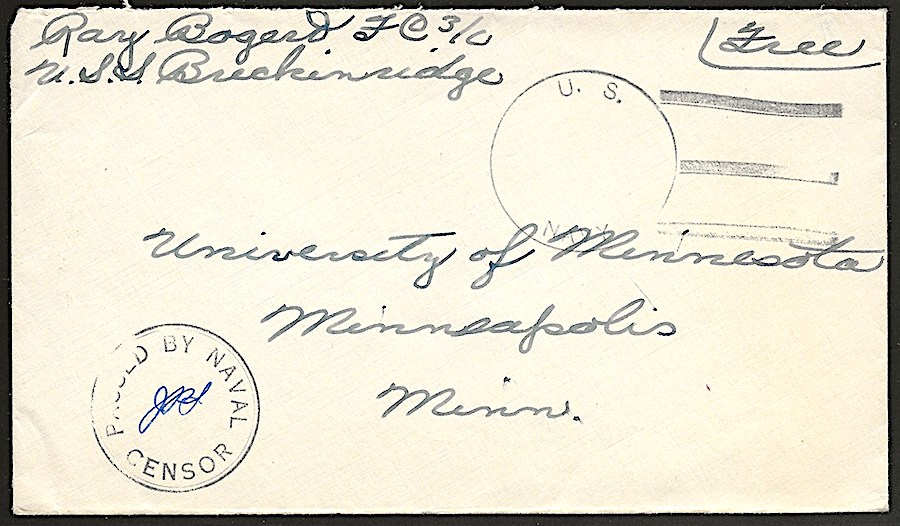 Ray Bogerd FC 3/c
U.S.S. Breckinridge
Free
U. S.
NAVY
University of Minnesota
Minneapolis
Minn.
PASSED BY NAVAL
CENSOR